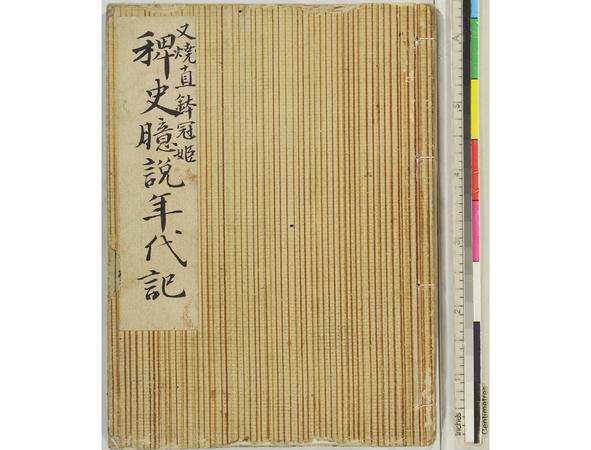 又焼直鉢冠姫
稗史臆説年代記
Inches
Centimetres